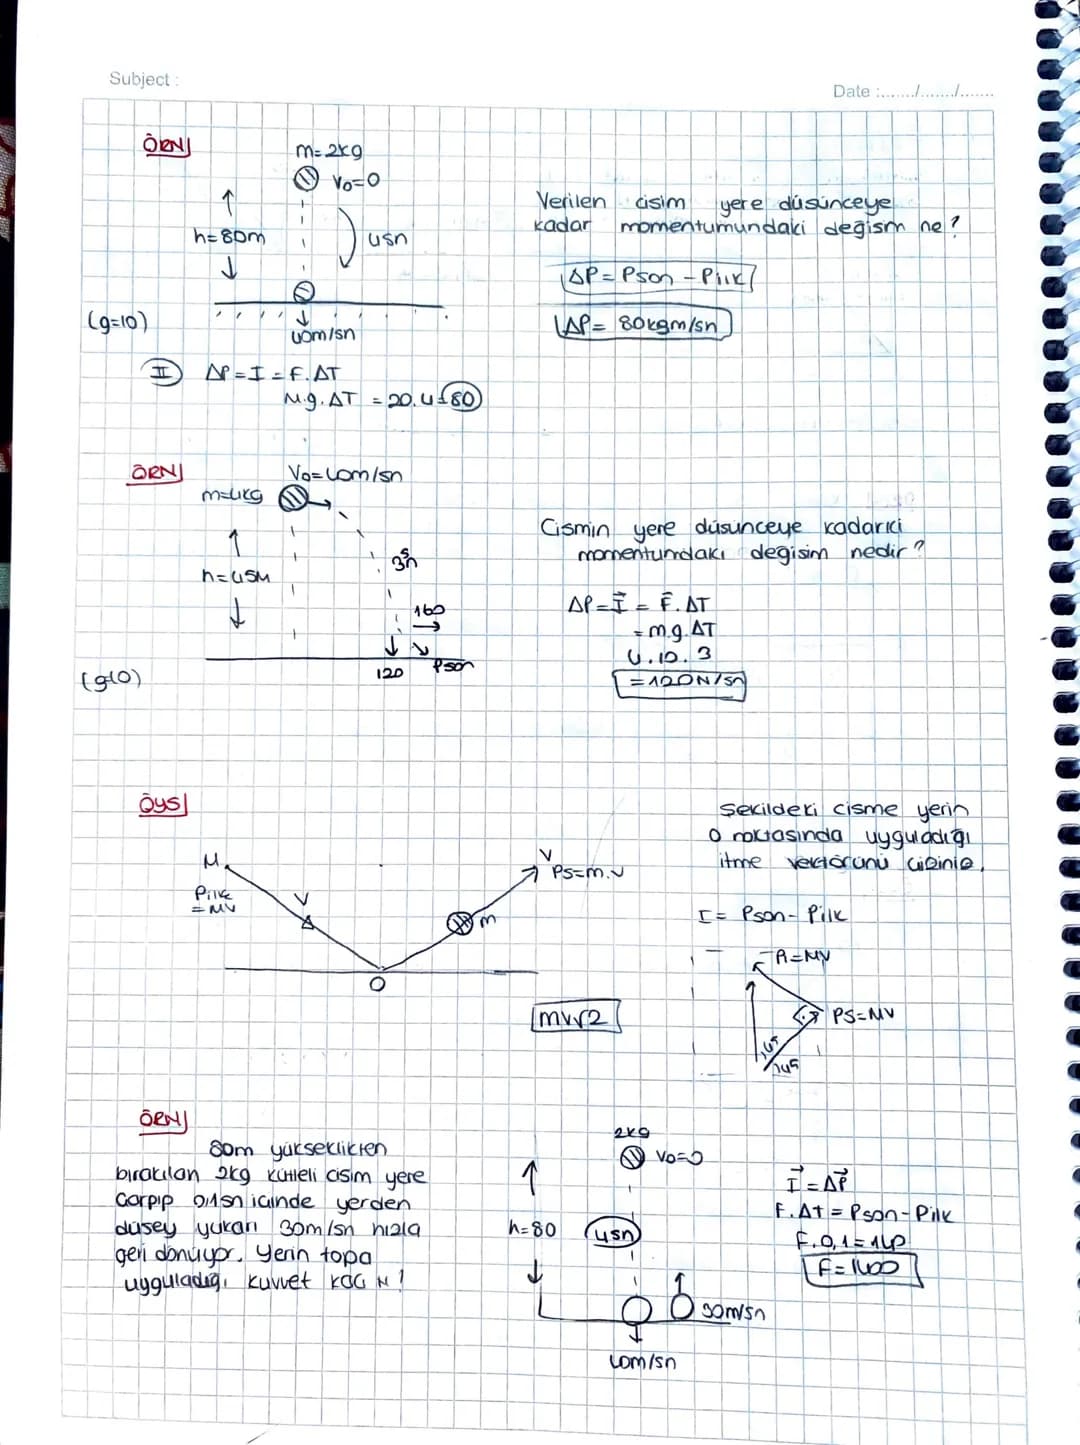 Subject :
Date :......./......./.......
ÖRN
m=2kg
V₀=0
h=80m
4sn
(g=10)
40m/sn
Verilen cisim yere düşünceye
kadar momentumundaki değişm ne?
ΔP=Pson-Pilk
ΔP= 80kgm/sn
II ΔP=I=F.ΔT
M.g.ΔT =20.4=80
ÖRN
V₀=40m/sn
m=4kg
h=45M
3sn
160
120
Pson
(g10)
Cismin yere düşünceye kadarki
momentumdaki değişim nedir?
ΔP=I = F.ΔT
=m.g.ΔT
4.10.3
=120N/sn
ÖYS
M
Pilk
=MV
V
O
m
V
Ps=m.v
Şekildeki cisme yerin
O noktasında uyguladığı
itme vektörünü çiziniz.
I= Pson- Pilk
-Pi=MV
PS=MV
45
45
mv√2
ÖRN
80m yükseklikten
bırakılan 2kg kütleli cisim yere
Çarpıp 0,1sn içinde yerden
düşey yukarı 30m/sn hızla
geri dönüyor. Yerin topa
uyguladığı kuvvet kaç N?
2kg
V₀=0
h=80
4sn
30m/sn
40m/sn
I=ΔP
F.Δt=Pson-Pilk
F.0,1=140
F=1400